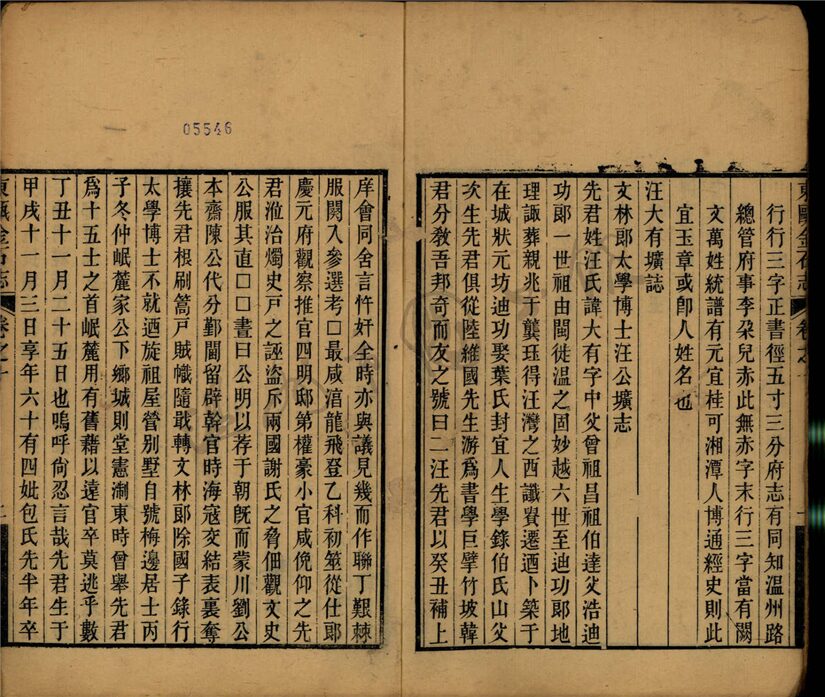 05546
行行三字正書徑五寸三分府志有同知溫州路
總管府事李朶兒赤此無赤字末行三字當有闕
文萬姓統譜有元宜桂可湘潭人博通經史則此
宜玉章或卽人姓名也
汪大有壙誌
文林郎太學博士汪公壙志
先君姓汪氏諱大有字中父曾祖昌祖伯達父浩迪
功郎一世祖由閩徙溫之固妙越六世至迪功郎地
理諏葬親兆于龔珏得汪灣之西讖賨遷迺卜築于
在城狀元坊迪功娶葉氏封宜人生學錄伯氏山父
次生先君俱從陸維國先生游爲書學巨擘竹坡韓
君分敎吾邦奇而友之號曰二汪先君以癸丑補上
東甌金石志
卷之十
庠會同舍言忤奸全時亦與議見幾而作聯丁艱棘
服闋入參選考□最咸淯龍飛登乙科初筮從仕郎
慶元府觀察推官四明邸第權豪小官咸俛仰之先
君涖治燭史戸之誣盜斥兩國謝氏之脅佃觀文史
公服其直□□書曰公明以荐于朝旣而蒙川劉公
本齋陳公代分鄞閫留辟幹官時海寇交結表裏奪
攘先君根刷篙戸賊幟隨戢轉文林郎除國子錄行
太學博士不就迺旋祖屋營别墅自號梅邊居士丙
子冬仲岷麓家公下鄉城則堂憲淛東時曾舉先君
爲十五士之首岷麓用有舊藉以遠官卒莫逃乎數
丁丑十一月二十五日也嗚呼尙忍言哉先君生于
甲戌十一月三日享年六十有四妣包氏先半年卒
東甌金石志
卷之十
二